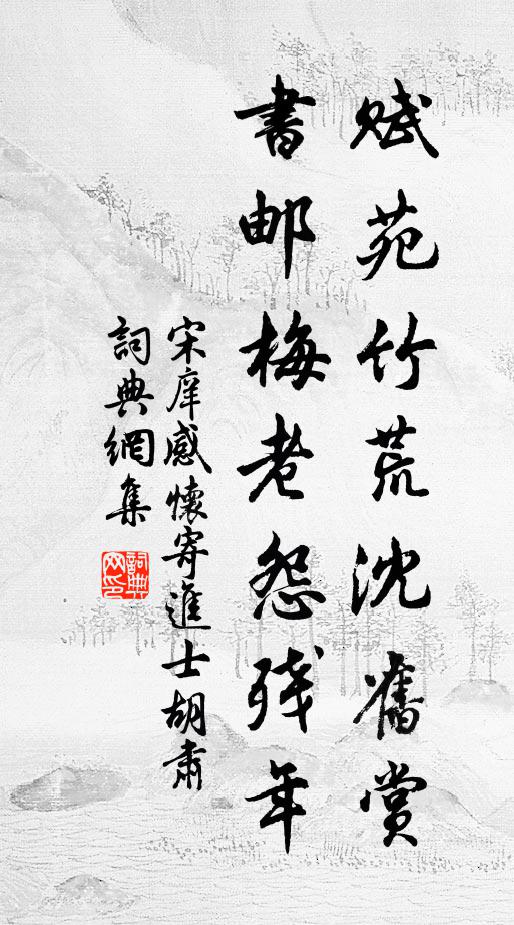 赋苑竹荒沈舊赏
書邮梅老怨残年
宋庠感懷寄進士胡肅
詞典網集
詞典网印